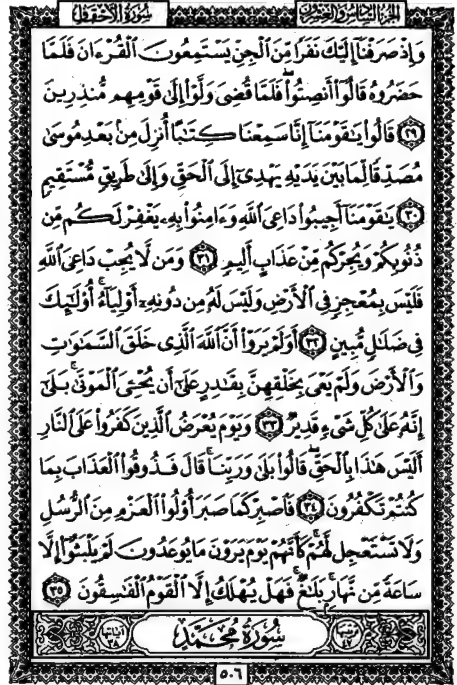 الجزء السادس والعشرون سورة الأحقاف
وَإِذْ صَرَفْنَآ إِلَيْكَ نَفَرًا مِّنَ ٱلْجِنِّ يَسْتَمِعُونَ ٱلْقُرْءَانَ فَلَمَّا
حَضَرُوهُ قَالُوٓا۟ أَنصِتُوا۟ ۖ فَلَمَّا قُضِىَ وَلَّوْا۟ إِلَىٰ قَوْمِهِم مُّنذِرِينَ
﴿٢٩﴾ قَالُوا۟ يَٰقَوْمَنَآ إِنَّا سَمِعْنَا كِتَٰبًا أُنزِلَ مِنۢ بَعْدِ مُوسَىٰ
مُصَدِّقًا لِّمَا بَيْنَ يَدَيْهِ يَهْدِىٓ إِلَى ٱلْحَقِّ وَإِلَىٰ طَرِيقٍ مُّسْتَقِيمٍ
﴿٣٠﴾ يَٰقَوْمَنَآ أَجِيبُوا۟ دَاعِىَ ٱللَّهِ وَءَامِنُوا۟ بِهِۦ يَغْفِرْ لَكُم مِّن
ذُنُوبِكُمْ وَيُجِرْكُم مِّنْ عَذَابٍ أَلِيمٍ ﴿٣١﴾ وَمَن لَّا يُجِبْ دَاعِىَ ٱللَّهِ
فَلَيْسَ بِمُعْجِزٍ فِى ٱلْأَرْضِ وَلَيْسَ لَهُۥ مِن دُونِهِۦٓ أَوْلِيَآءُ ۚ أُو۟لَٰٓئِكَ
فِى ضَلَٰلٍ مُّبِينٍ ﴿٣٢﴾ أَوَلَمْ يَرَوْا۟ أَنَّ ٱللَّهَ ٱلَّذِى خَلَقَ ٱلسَّمَٰوَٰتِ
وَٱلْأَرْضَ وَلَمْ يَعْىَ بِخَلْقِهِنَّ بِقَٰدِرٍ عَلَىٰٓ أَن يُحْـِۧىَ ٱلْمَوْتَىٰ ۚ بَلَىٰٓ
إِنَّهُۥ عَلَىٰ كُلِّ شَىْءٍ قَدِيرٌ ﴿٣٣﴾ وَيَوْمَ يُعْرَضُ ٱلَّذِينَ كَفَرُوا۟ عَلَى ٱلنَّارِ
أَلَيْسَ هَٰذَا بِٱلْحَقِّ ۖ قَالُوا۟ بَلَىٰ وَرَبِّنَا ۚ قَالَ فَذُوقُوا۟ ٱلْعَذَابَ بِمَا
كُنتُمْ تَكْفُرُونَ ﴿٣٤﴾ فَٱصْبِرْ كَمَا صَبَرَ أُو۟لُوا۟ ٱلْعَزْمِ مِنَ ٱلرُّسُلِ
وَلَا تَسْتَعْجِل لَّهُمْ ۚ كَأَنَّهُمْ يَوْمَ يَرَوْنَ مَا يُوعَدُونَ لَمْ يَلْبَثُوٓا۟ إِلَّا
سَاعَةً مِّن نَّهَارٍۭ ۚ بَلَٰغٌ ۚ فَهَلْ يُهْلَكُ إِلَّا ٱلْقَوْمُ ٱلْفَٰسِقُونَ ﴿٣٥﴾
ترتيبها ٤٧ سُورَةُ مُحَمَّدٍ آياتها ٣٨
٥٠٦